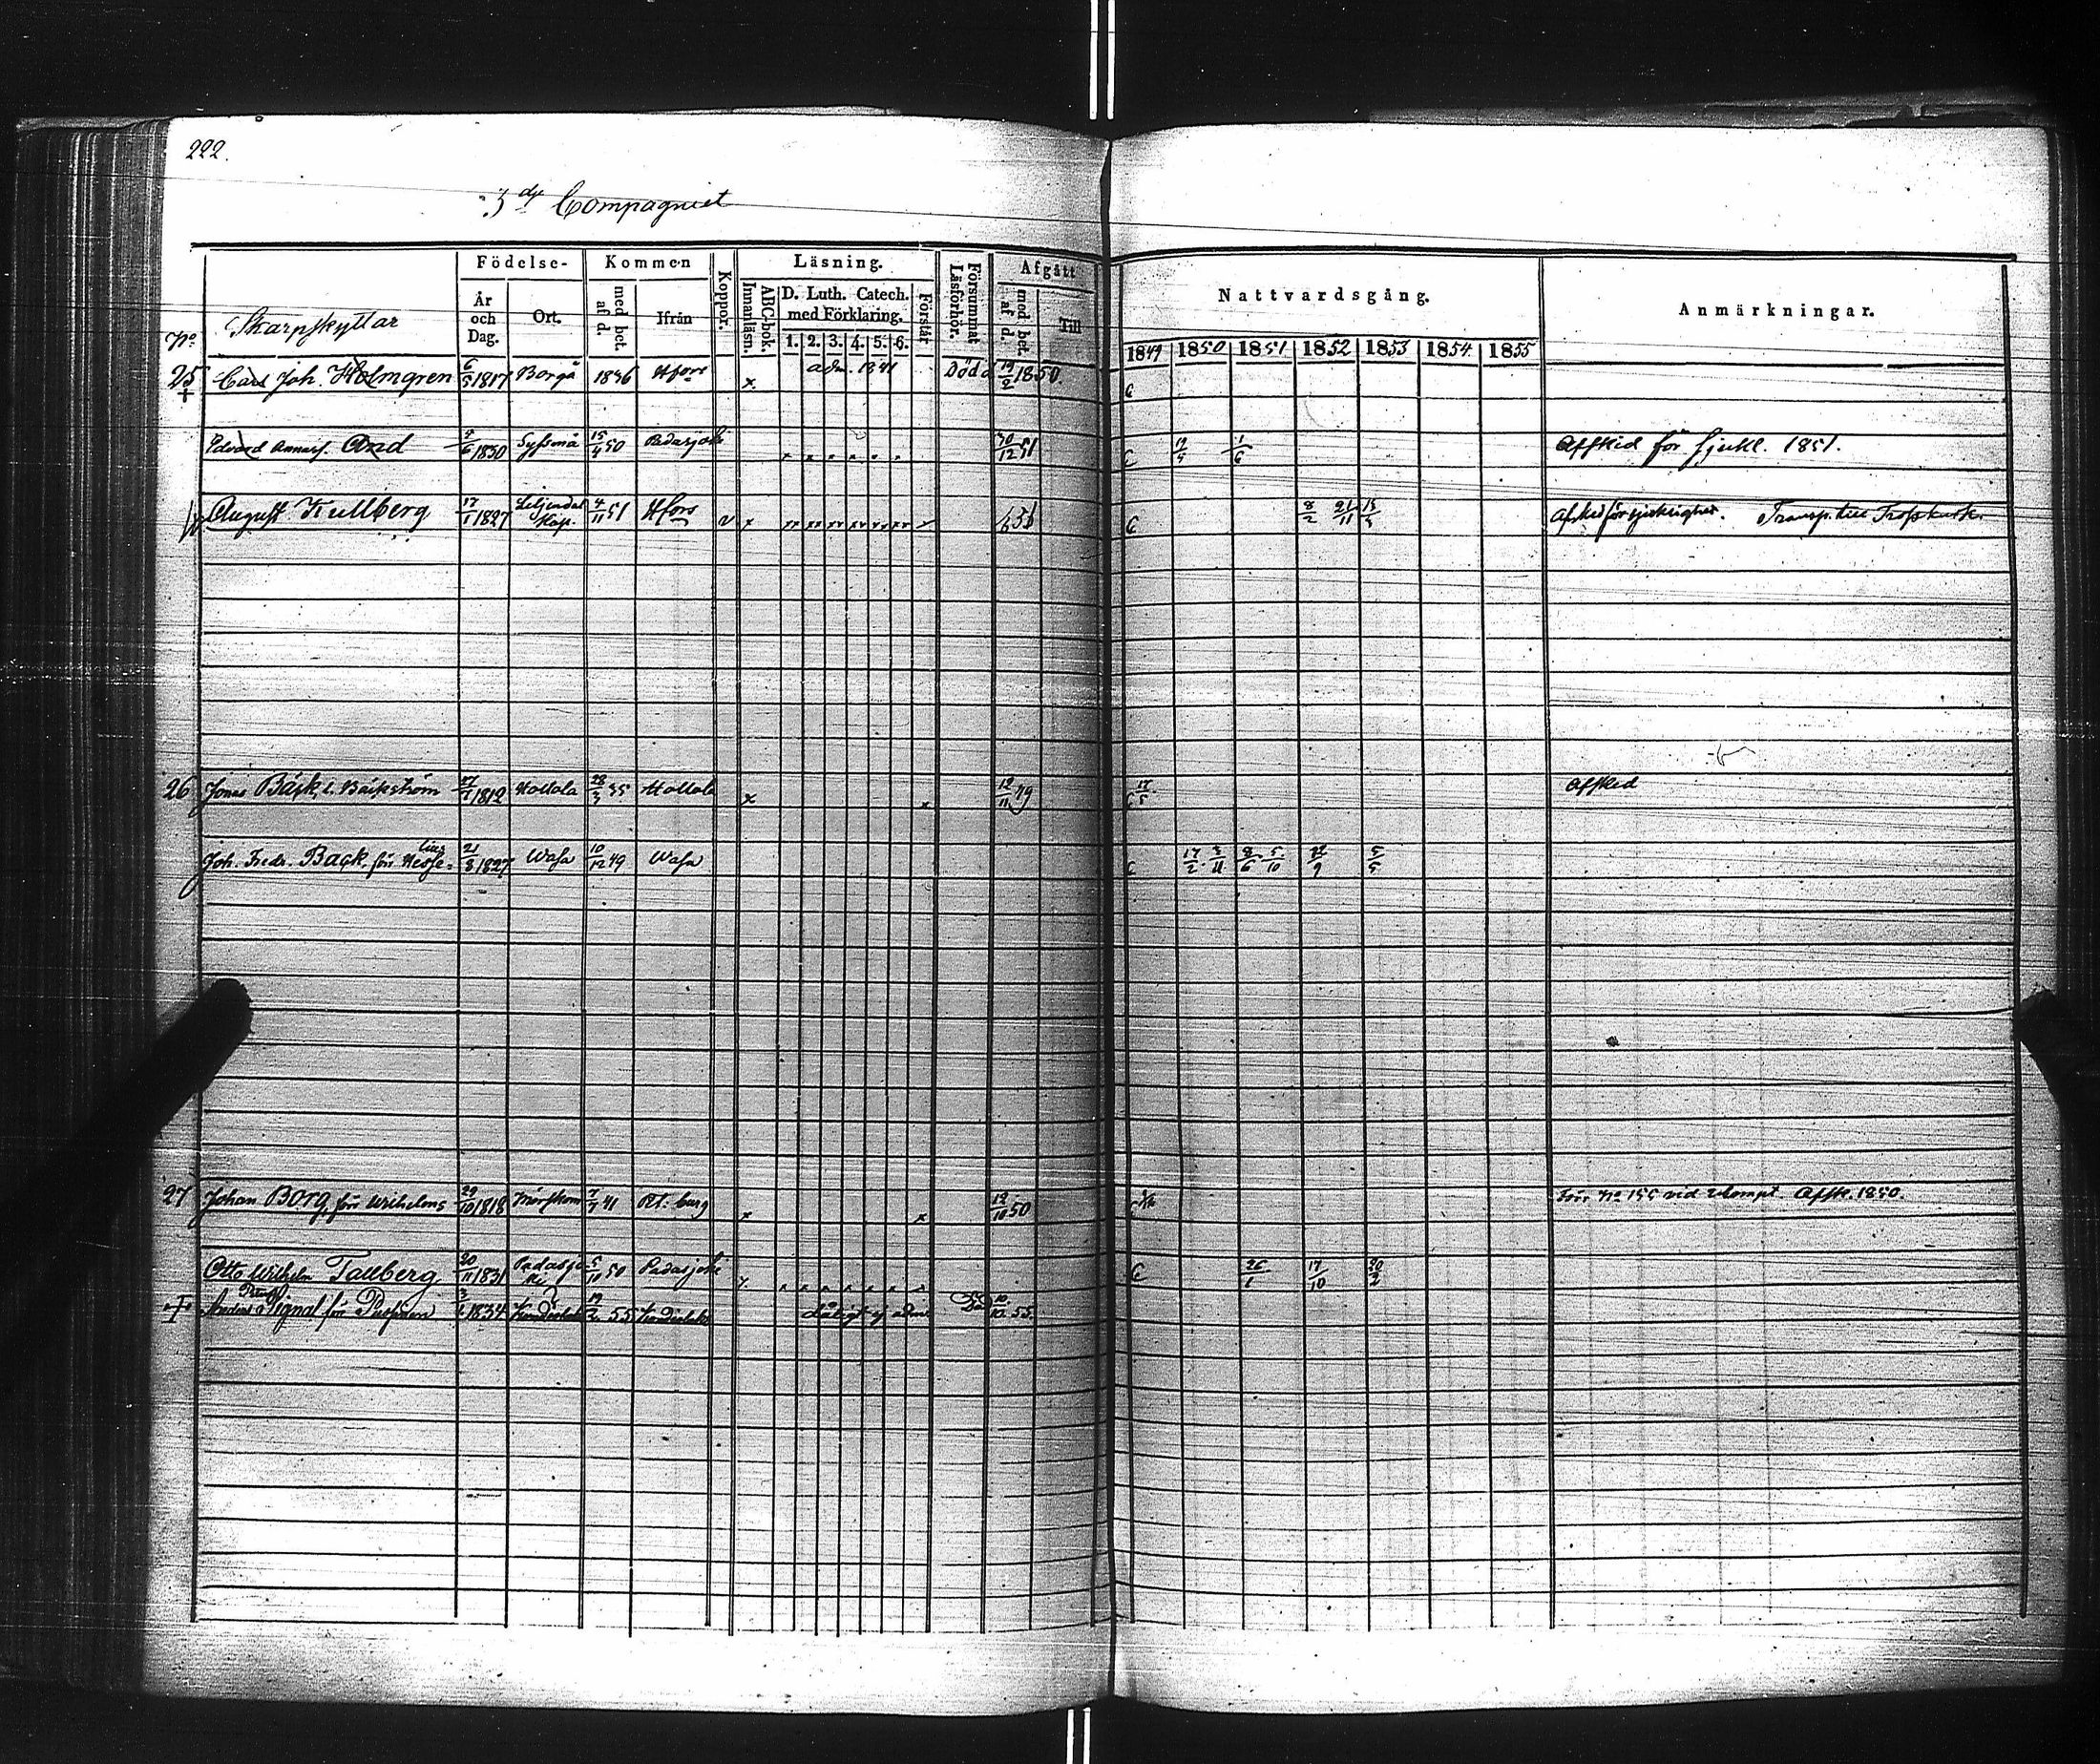 222.
3dje Compagniet
No Skarpskyttar
Födelse- Kommen Koppor. Läsning. Försummat Läsförhör. Afgått Nattvardsgång. Anmärkningar.
År och Dag. Ort. med bet. af d. Ifrån Innanläsn. ABC-bok. D. Luth. Catech. med Förklaring. Förstår med bet. af d. Till
1. 2. 3. 4. 5. 6. 1849 1850 1851 1852 1853 1854 1855
25 Carl Joh. Holmgren 6/5 1817 Borgå 1836 Hfors x adm. 1841 Död d 19/2 1850. C
Edvard Annas. Ond 1830 Syssmä 15/4 50 Padasjoki 30/12 51 C 19/5 1/6 Afsked för sjukl. 1851.
August Kullberg 17/1 1827 Liljendal Kap. 4/11 51 Hfors C 8/2 21/11 Afsked för sjuklighet. Transp. till
26 Jonas Bäck l. Bäckström 1812 Hollola 35 Hollola x x 12/11 49 C 17/5 Afsked
Joh. Fredr. Back för 21/8 1827 Wasa 10/12 49 Wasa C 17/2 3/11 8/6 5/10 22/9 5/5
27 Johan Borg för Wilhelms 29/10 1818 Mörskom 7/7 41 Pet. burg x x 50 C No 155 vid Afsk. 1850.
Otto Wilhelm Tallberg 20/11 1831 Padasjoki 5/10 50 Padasjoki C 26/1 17/10 20/2
+ Anders Signal för 1834 19/2 55 dåligt ej adm. Död 55.